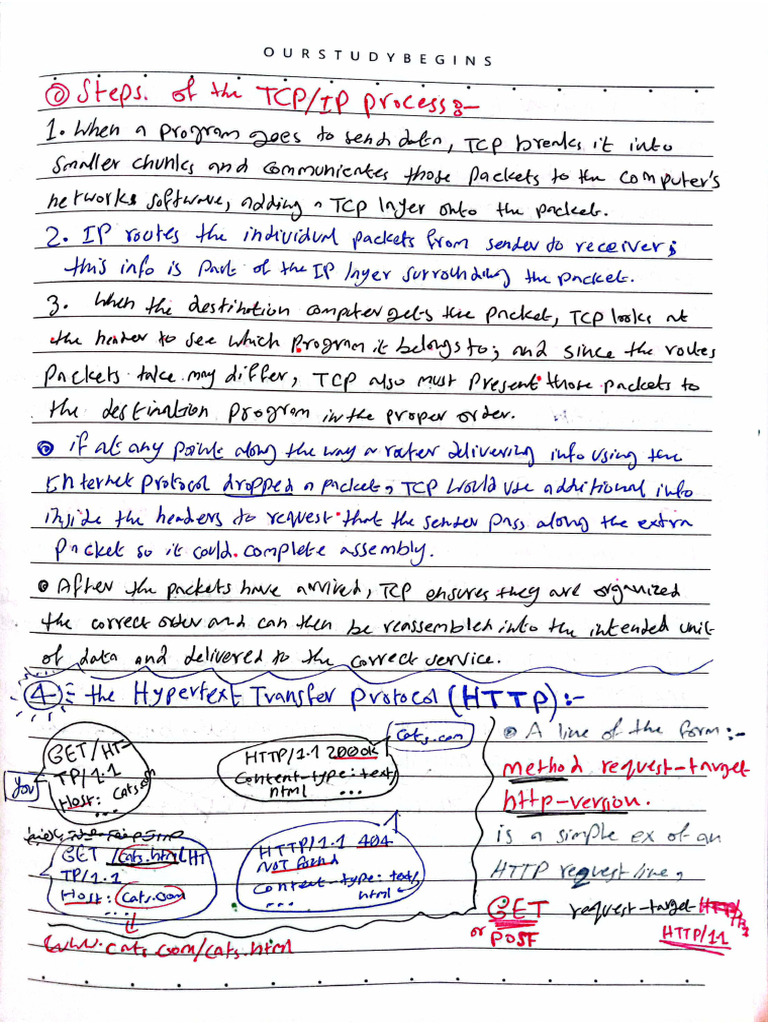 OURSTUDYBEGINS
Steps. of the TCP/IP process:-
1. When a program goes to send data, TCP breaks it into
smaller chunks and communicates those packets to the computer's
networks software, adding a TCP layer onto the packet.
2. IP routes the individual packets from sender to receiver;
this info is part of the IP layer surrounding the packet.
3. When the destination computer gets the packet, TCP looks at
the header to see which program it belongs to; and since the routes
packets take may differ, TCP also must present those packets to
the destination program in the proper order.
if at any point along the way a router delivering info using the
Internet protocol dropped a packet, TCP would use additional info
inside the headers to request that the sender pass along the extra
packet so it could complete assembly.
After the packets have arrived, TCP ensures they are organized
the correct order and can then be reassembled into the intended unit
of data and delivered to the correct service.
4- the Hypertext Transfer Protocol (HTTP):-
You
GET / HT-
TP/1.1
Host: cats.com
...
cats.com
HTTP/1.1 200 ok
Content-type: text/
html ...
GET /cats.html HT
TP/1.1
Host: cats.com
...
www.cats.com/cats.html
HTTP/1.1 404
Not found
Content-type: text/
html
...
A line of the form:-
method request-target
http-version.
is a simple ex of an
HTTP request line,
GET request-target
or POST
HTTP/1.1